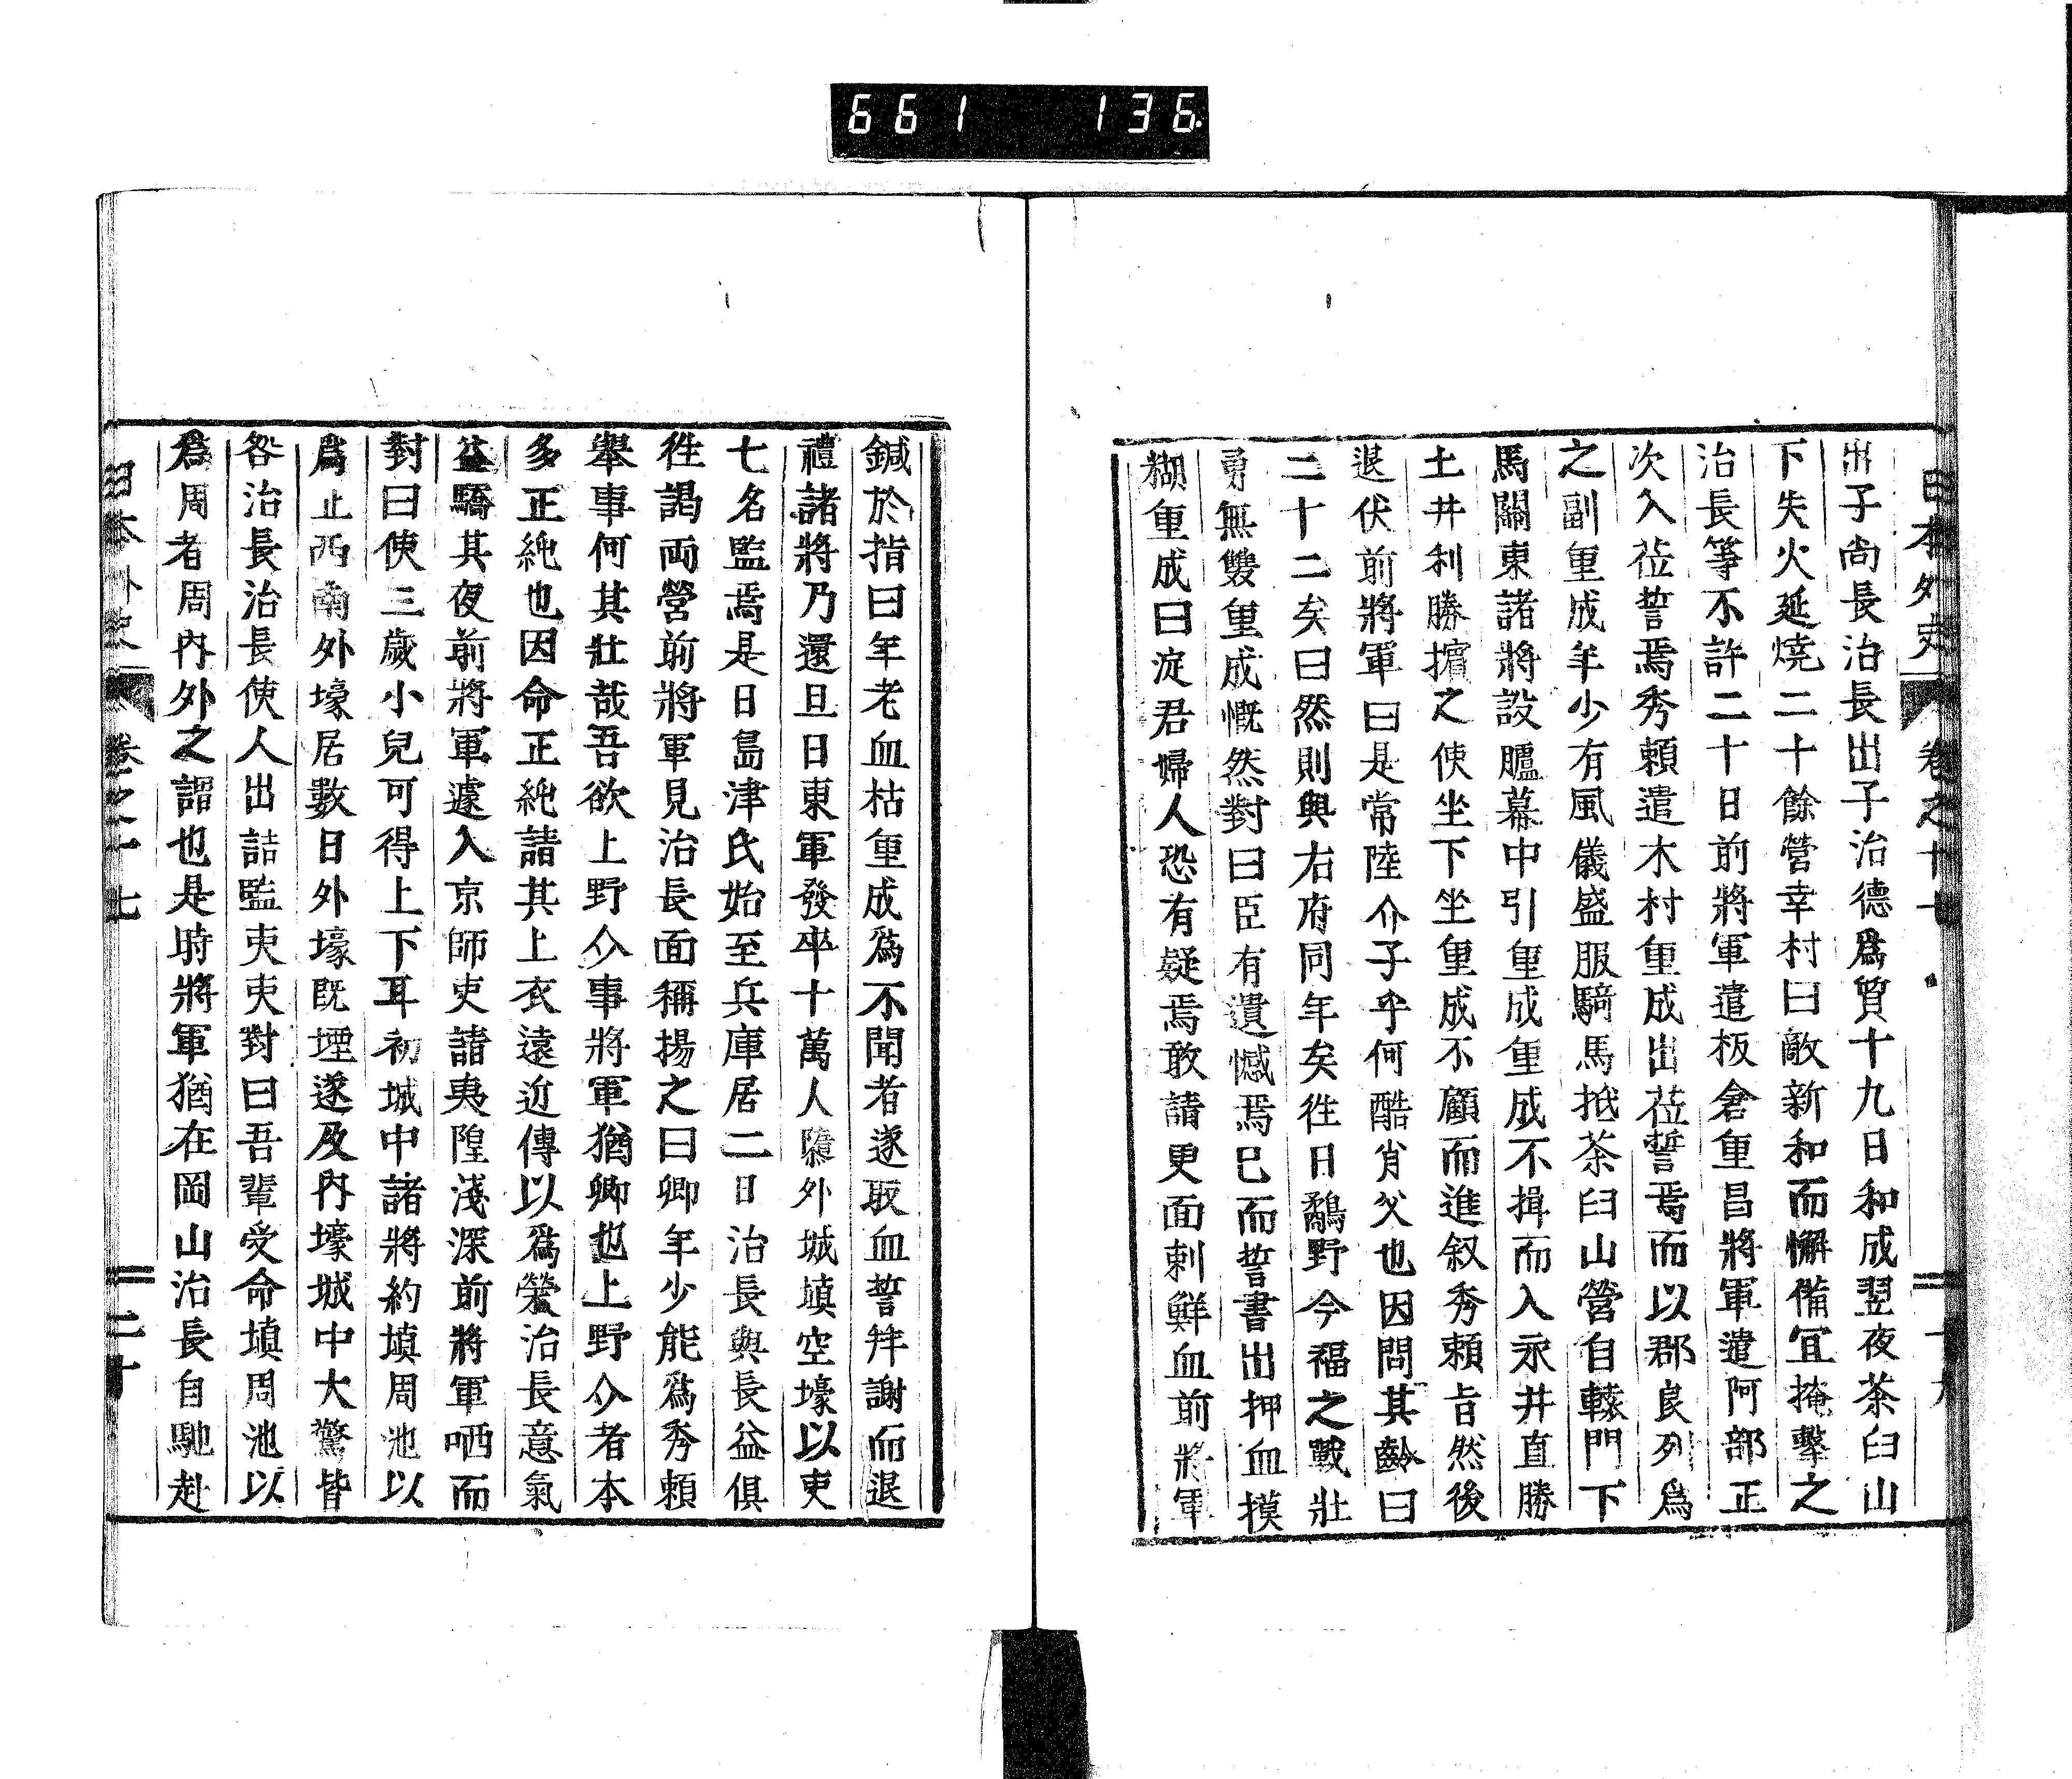 661 136
日本外史 卷之十七 十九
出子尚長治長出子治德爲質十九日和成翌夜茶臼山
下失火延燒二十餘營幸村曰敵新和而懈備宜掩擊之
治長等不許二十日前將軍遣板倉重昌將軍遣阿部正
次入莅誓焉秀賴遣木村重成出莅誓焉而以郡良列爲
之副重成年少有風儀盛服騎馬抵茶臼山營自轅門下
馬關東諸將設臚幕中引重成重成不揖而入永井直勝
土井利勝擯之使坐下坐重成不顧而進叙秀賴旨然後
退伏前將軍曰是常陸介子乎何酷肖父也因問其齡曰
二十二矣曰然則與右府同年矣徃日鷸野今福之戰壯
勇無雙重成慨然對曰臣有遺憾焉已而誓書出押血摸
糊重成曰淀君婦人恐有疑焉敢請更面刺鮮血前將軍
鍼於指曰年老血枯重成爲不聞者遂取血誓牉謝而退
禮諸將乃還旦日東軍發卒十萬人隳外城塡空壕以吏
七名監焉是日島津氏始至兵庫居二日治長與長益俱
徃謁両營前將軍見治長面稱揚之曰卿年少能爲秀賴
舉事何其壯哉吾欲上野介事將軍猶卿也上野介者本
多正純也因命正純請其上衣遠近傳以爲榮治長意氣
益驕其夜前將軍遽入京師吏請夷隍淺深前將軍哂而
對曰使三歲小兒可得上下耳初城中諸將約塡周池以
爲止西南外壕居數日外壕既堙遂及內壕城中大驚皆
咎治長治長使人出詰監吏吏對曰吾輩受命塡周池以
爲周者周內外之謂也是時將軍猶在岡山治長自馳赴
日本外史 卷之十七 二十